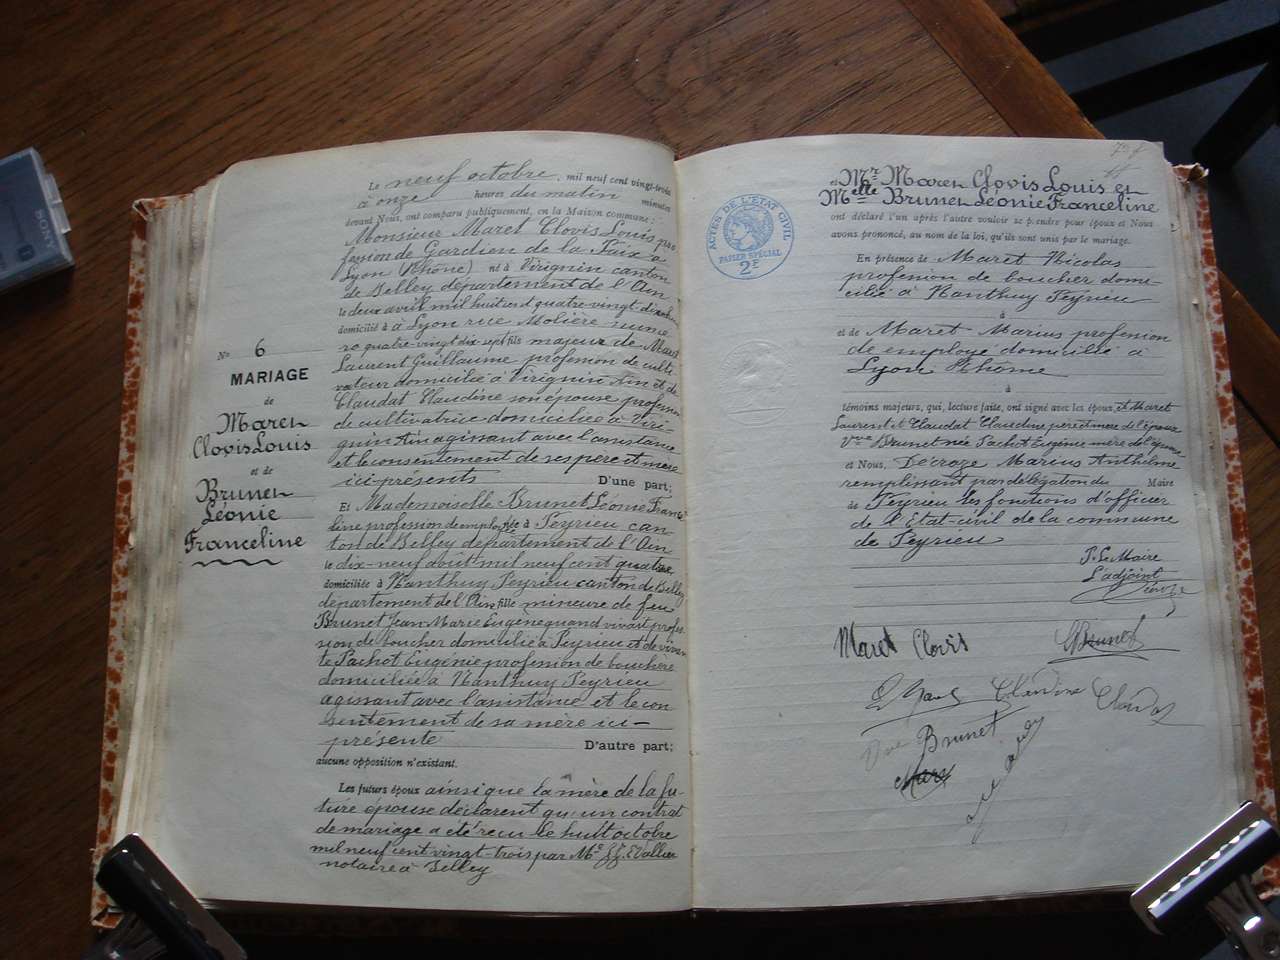 Le neuf octobre, mil neuf cent vingt-trois
à onze heures du matin minutes
devant Nous, ont comparu publiquement, en la Maison commune :
Monsieur Maret Clovis Louis pro
fession de Gardien de la Paix à
Lyon (Rhône) né à Virignin canton
de Belley département de l'Ain
le deux avril mil huit cent quatre-vingt dix
domicilié à à Lyon rue Molière numé
ro quatre vingt dix sept fils majeur de Maret
Laurent Guillaume profession de culti
vateur domicilié à Virignin Ain et de
Claudat Claudine son épouse profession
de cultivatrice domiciliée à Viri-
gnin Ain agissant avec l'assistance
et le consentement de ses père et mère
ici-présents D'une part;
Nº 6
MARIAGE
de
Maret
Clovis Louis
et de
Brunet
Léonie
Franceline
Et Mademoiselle Brunet Léonie France
line profession de employée à Peyrieu can
ton de Belley département de l'Ain
le dix-neuf août mil neuf cent quatre
domiciliée à Nanthuy Peyrieu canton de Belley
département de l'Ain fille mineure de feu
Brunet Jean Marie Eugène quand vivait profes-
sion de boucher domicilié à Peyrieu et de vivan
te Pachot Eugénie profession de bouchère
domiciliée à Nanthuy Peyrieu
agissant avec l'assistance et le con
sentement de sa mère ici-
présente D'autre part;
aucune opposition n'existant.
Les futurs époux ainsi que la mère de la fu-
ture épouse déclarent qu'un contrat
de mariage a été reçu le huit octobre
mil neuf cent vingt-trois par Me Vallier
notaire à Belley
et Mr Maret Clovis Louis et
Melle Brunet Léonie Franceline
ont déclaré l'un après l'autre vouloir se prendre pour époux et Nous
avons prononcé, au nom de la loi, qu'ils sont unis par le mariage.
ACTES DE L'ÉTAT CIVIL
PAPIER SPÉCIAL
2F
En présence de Maret Nicolas
profession de boucher domi-
cilié à Nanthuy Peyrieu
à
et de Maret Marius profession
de employé domicilié à
Lyon Rhône
à
témoins majeurs, qui, lecture faite, ont signé avec les époux et Maret
Laurent et Claudat Claudine père et mère de l'époux
Vve Brunet née Pachot Eugénie mère de l'épouse
et Nous, Décroze Marius Anthelme
remplissant par délégation du Maire
de Peyrieu les fonctions d'officier
de l'Etat-civil de la commune
de Peyrieu
P. Le Maire
L'adjoint
Maret Clovis
Brunet
Claudine Claudat
Vve Brunet
SONY